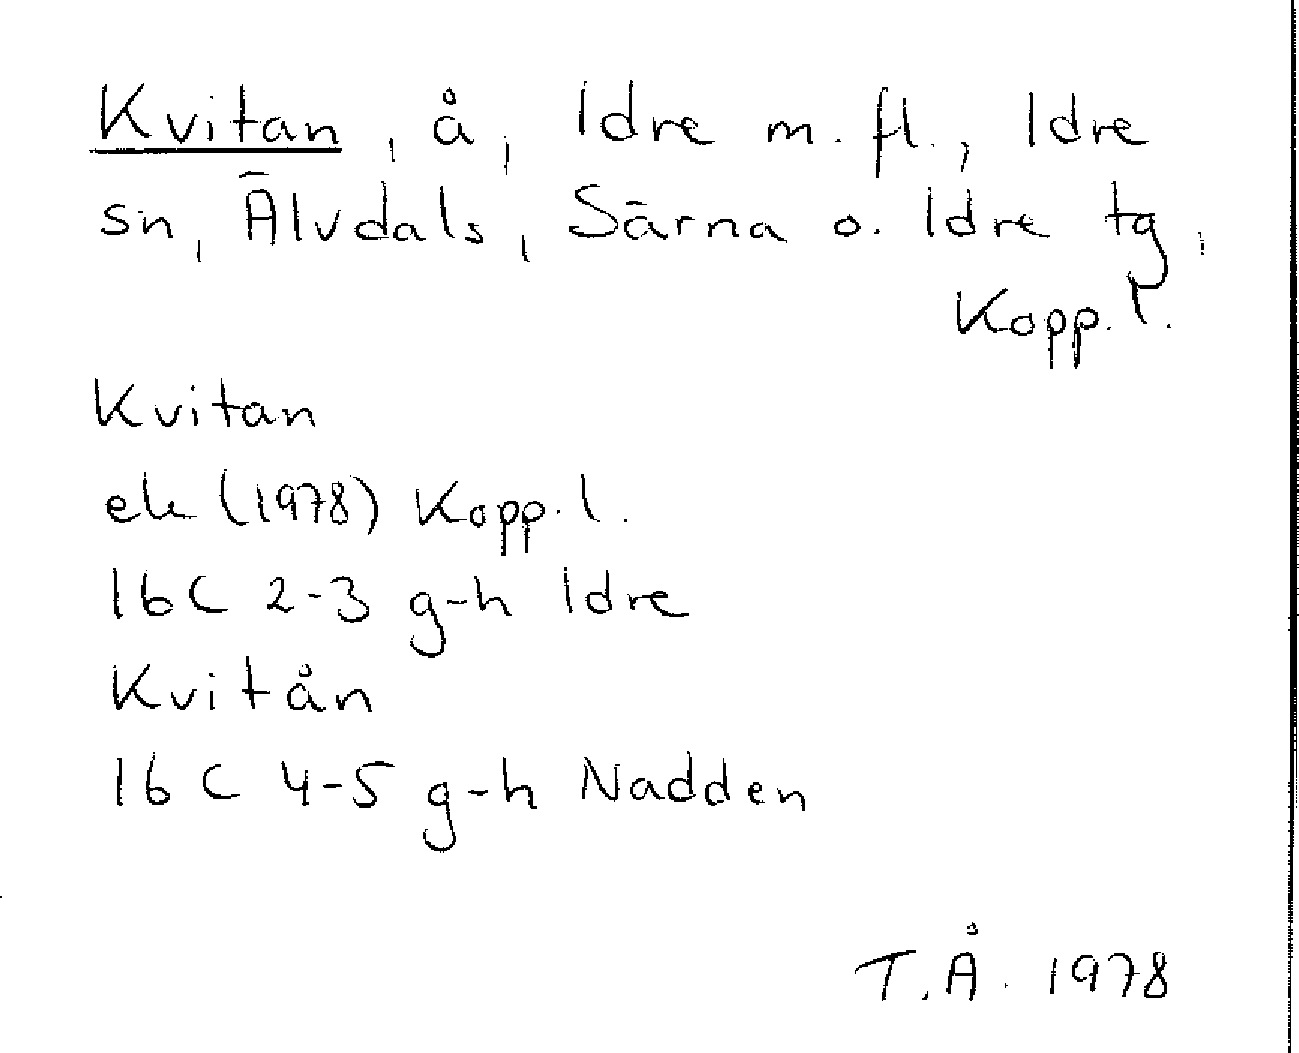 Kvitan, å, Idre m. fl., Idre
sn, Älvdals, Särna o. Idre tg,
Kopp. l.
Kvitan
ek (1978) Kopp. l.
16C 2-3 g-h Idre
Kvitån
16C 4-5 g-h Nadden
T.Å. 1978